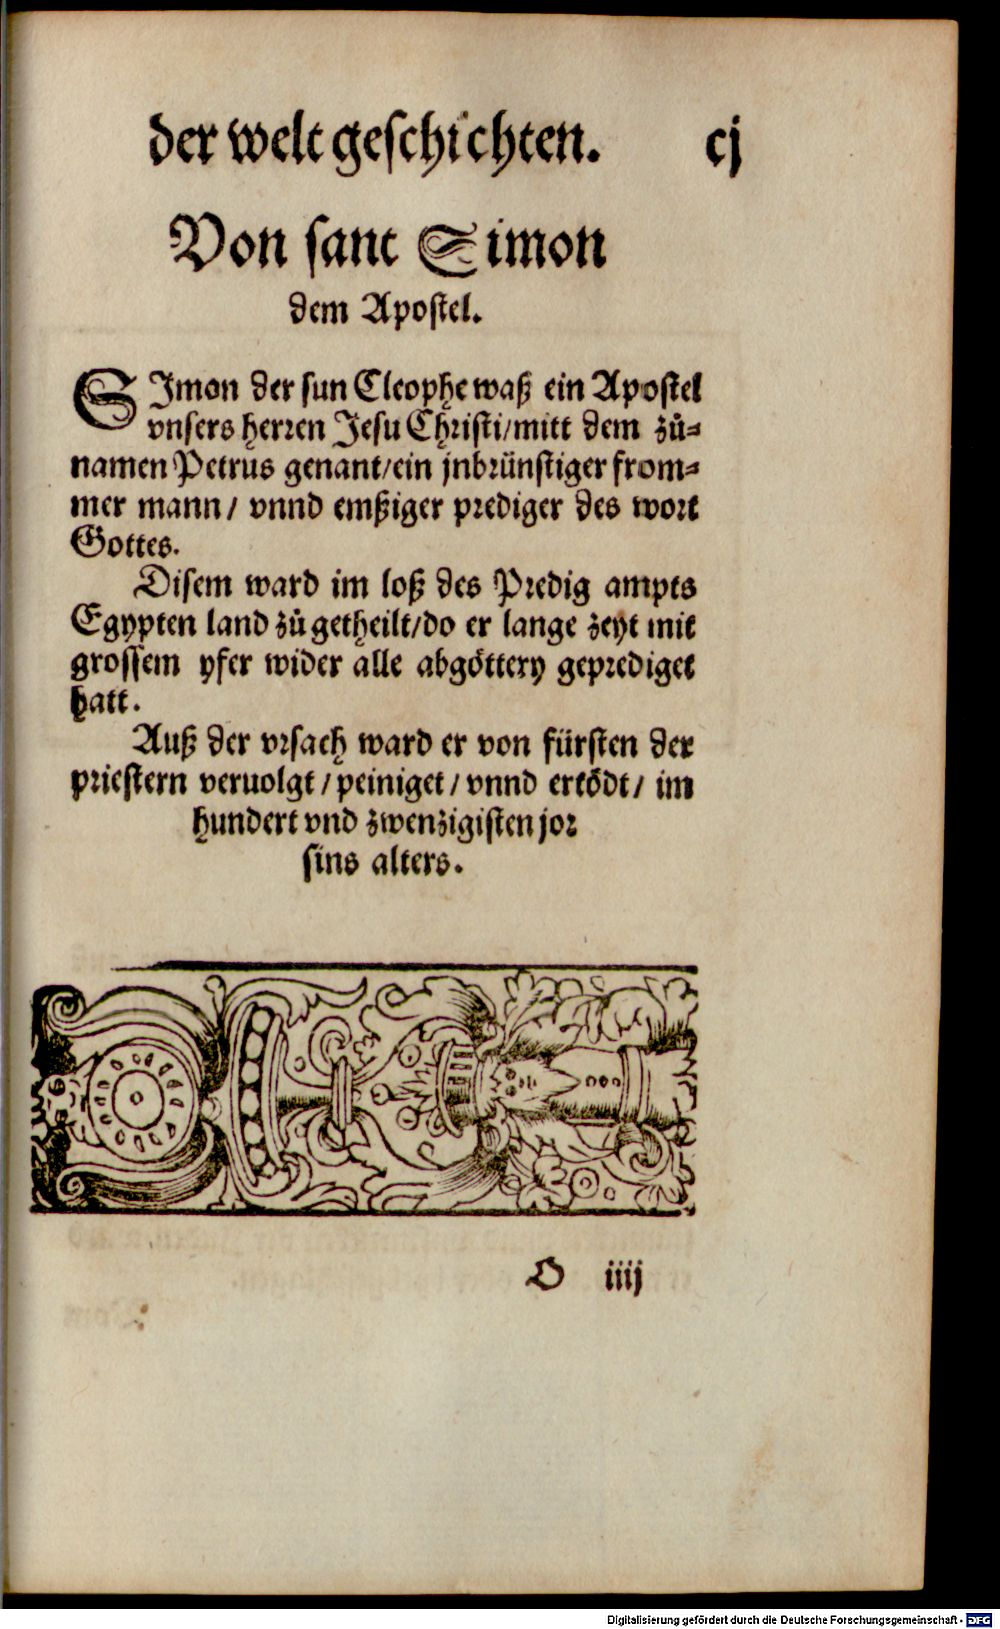 der welt geschichten. cj
Von sant Simon
dem Apostel.
SImon der sun Cleophe waß ein Apostel
vnsers herren Jesu Christi/mitt dem zů-
namen Petrus genant/ein jnbrünstiger from-
mer mann/ vnnd emßiger prediger des wort
Gottes.
Disem ward im loß des Predig ampts
Egypten land zů getheilt/do er lange zeyt mit
grossem yfer wider alle abgöttery geprediget
hatt.
Auß der vrsach ward er von fürsten der
priestern veruolgt/peiniget/vnnd ertödt/ im
hundert vnd zwenzigisten jor
sins alters.
O iiij
Digitalisierung gefördert durch die Deutsche Forschungsgemeinschaft - DFG